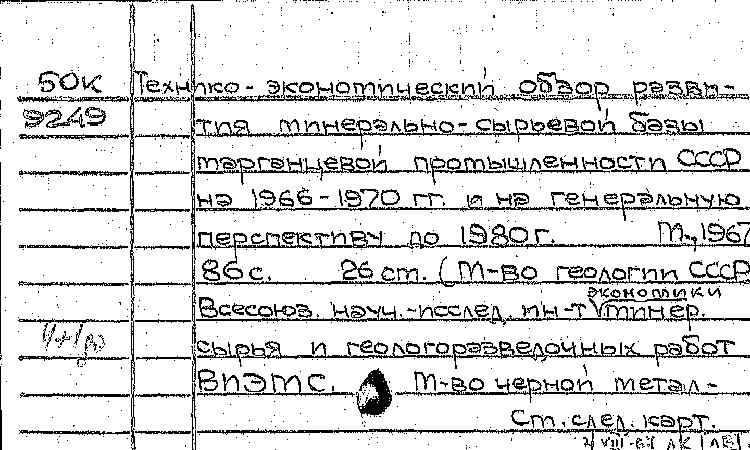 50К Технико-экономический обзор разви-
9249 тия минерально-сырьевой базы
марганцевой промышленности СССР
на 1966-1970 гг. и на генеральную
перспективу до 1980г. М., 1967
86с. 26 см. (М-во геологии СССР
экономики
Всесоюз. науч.-исслед. ин-т √минер.
сырья и геологоразведочных работ
ВИЭМС. М-во черной метал-
См. след. карт.